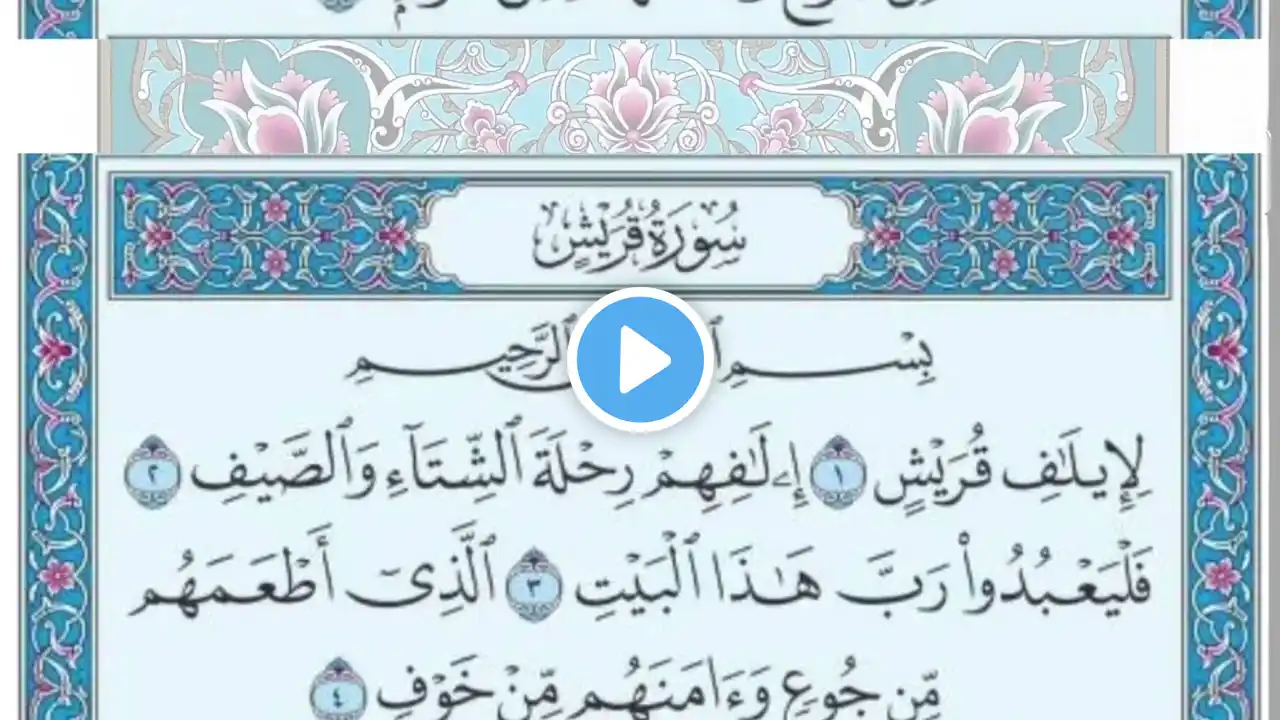 سُورَةُ قُرَيْشٍ
بِسْمِ ٱلرَّحِيمِ
لِإِيلَٰفِ قُرَيْشٍ ١ إِۦلَٰفِهِمْ رِحْلَةَ ٱلشِّتَآءِ وَٱلصَّيْفِ ٢
فَلْيَعْبُدُوا۟ رَبَّ هَٰذَا ٱلْبَيْتِ ٣ ٱلَّذِىٓ أَطْعَمَهُم
مِّن جُوعٍ وَءَامَنَهُم مِّنْ خَوْفٍۭ ٤